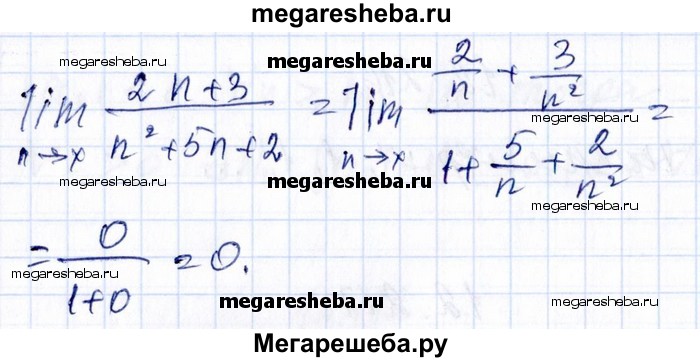 megaresheba.ru
megaresheba.ru megaresheba.ru megaresheba.ru
lim n→x (2n+3)/(n²+5n+2) = lim n→x (2/n + 3/n²)/(1 + 5/n + 2/n²) =
megaresheba.ru megaresheba.ru megaresheba.ru
= 0/(1+0) = 0.
megaresheba.ru megaresheba.ru megaresheba.ru
Мегарешеба.ру